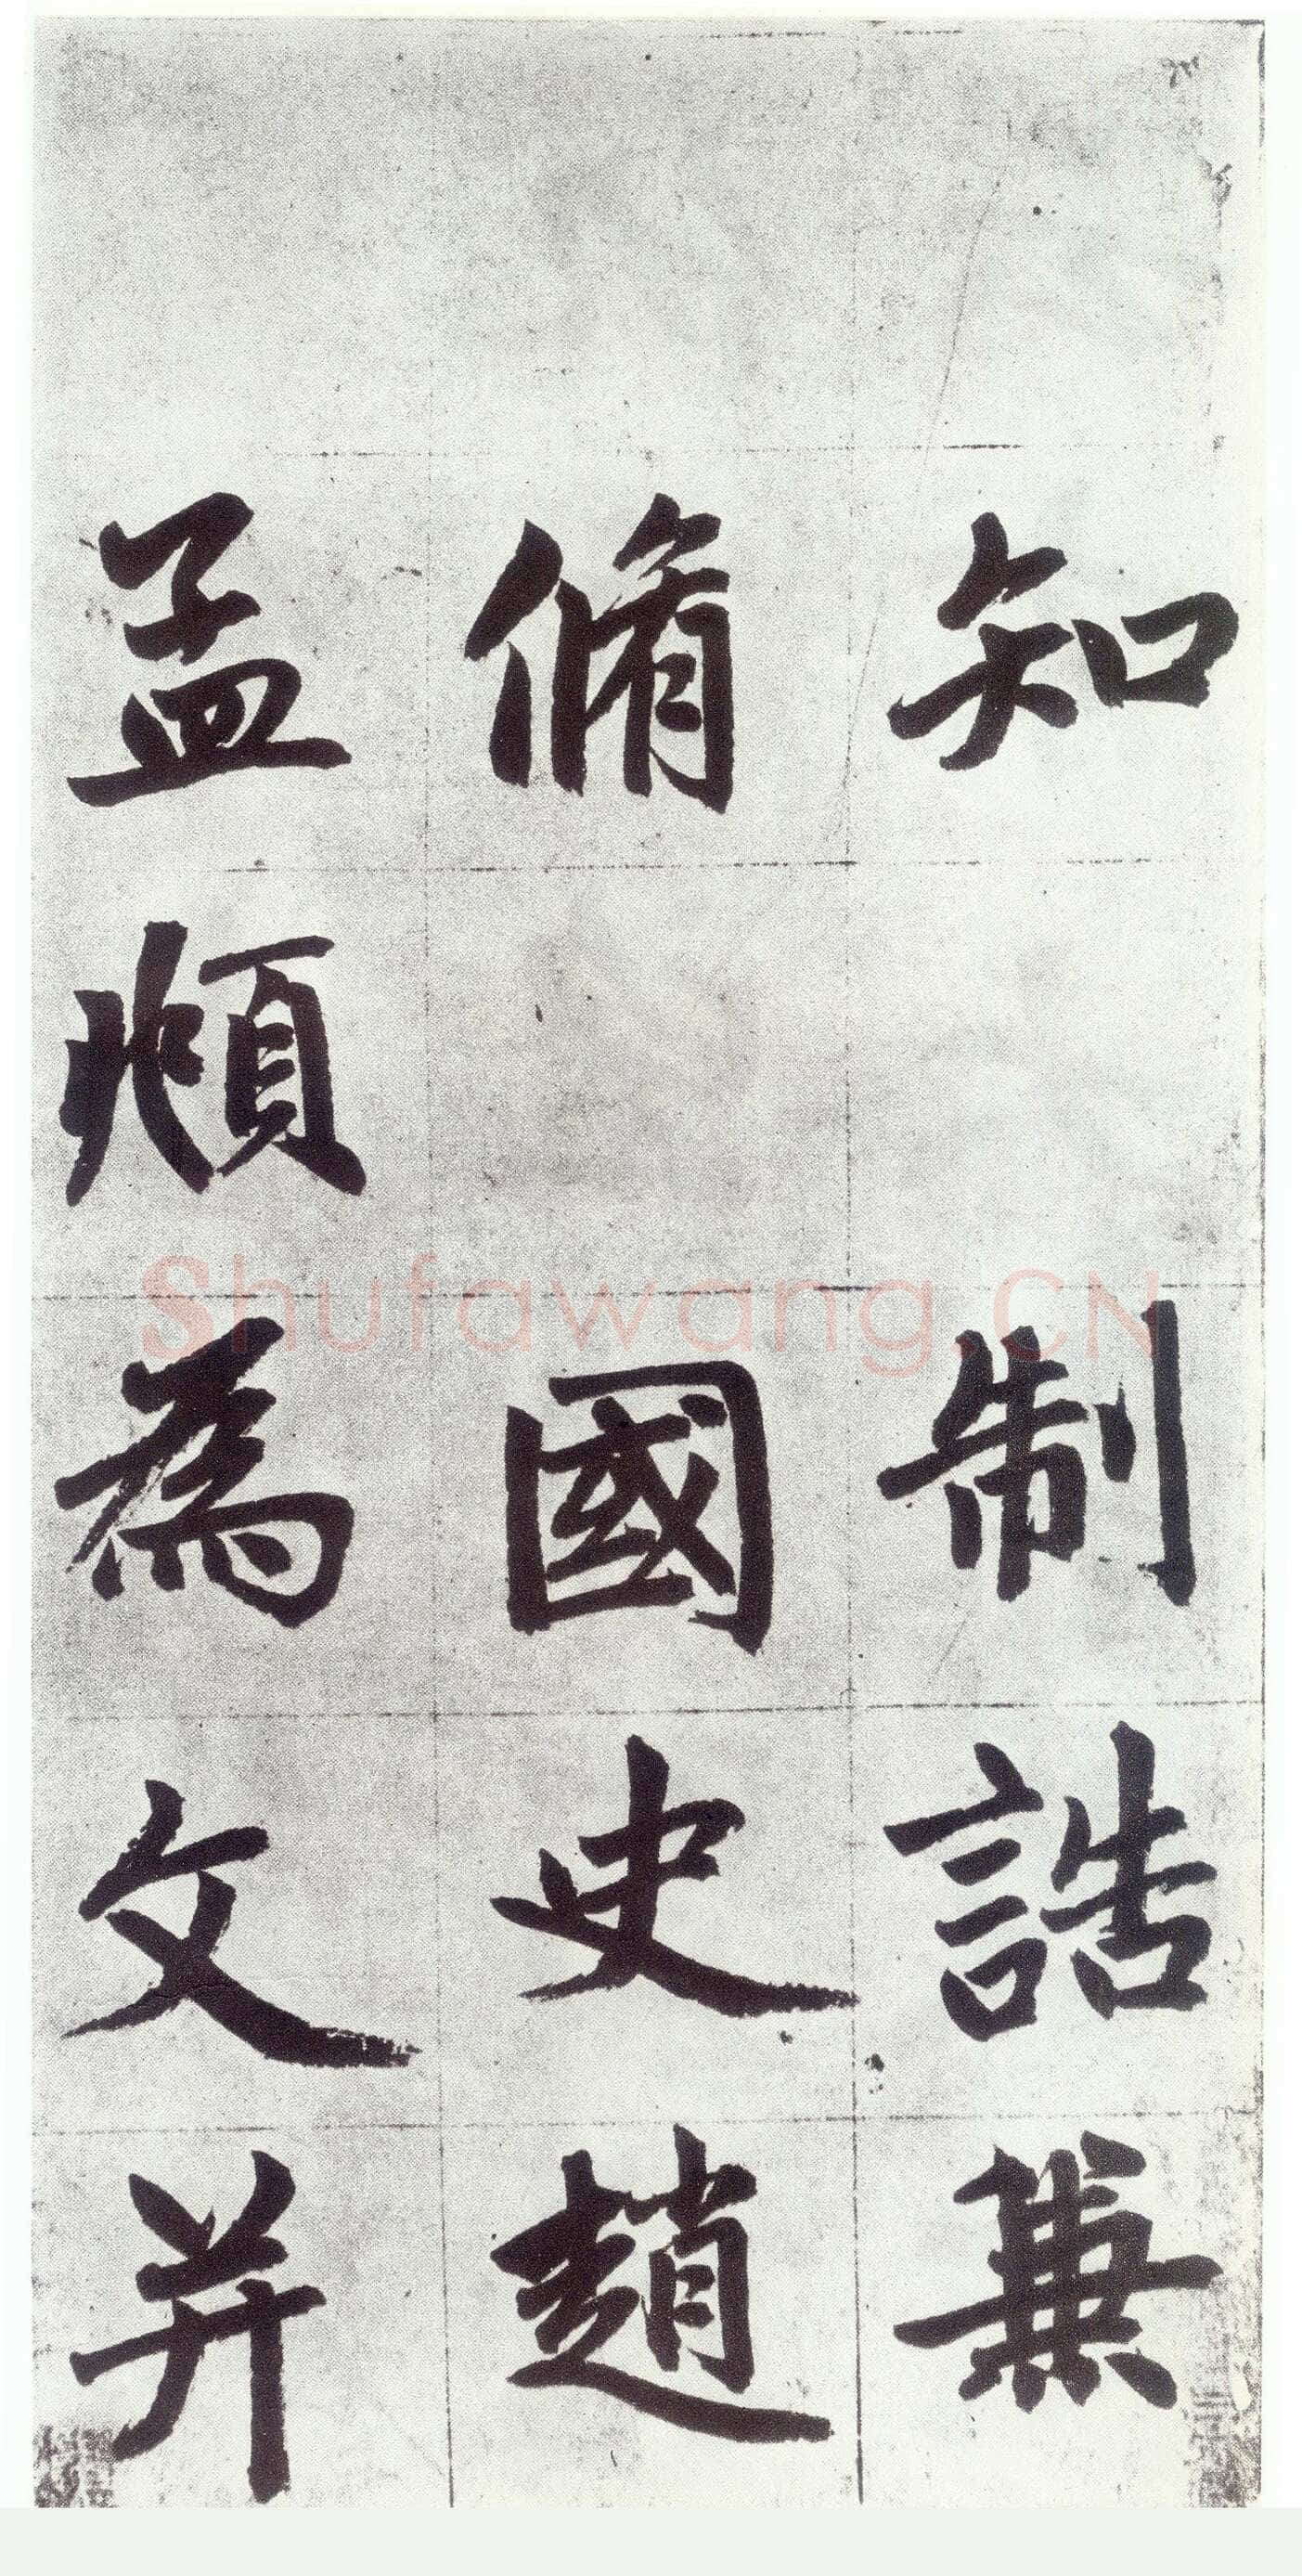 知 制誥兼
脩 國史趙
孟頫為文并
Shufawang.CN